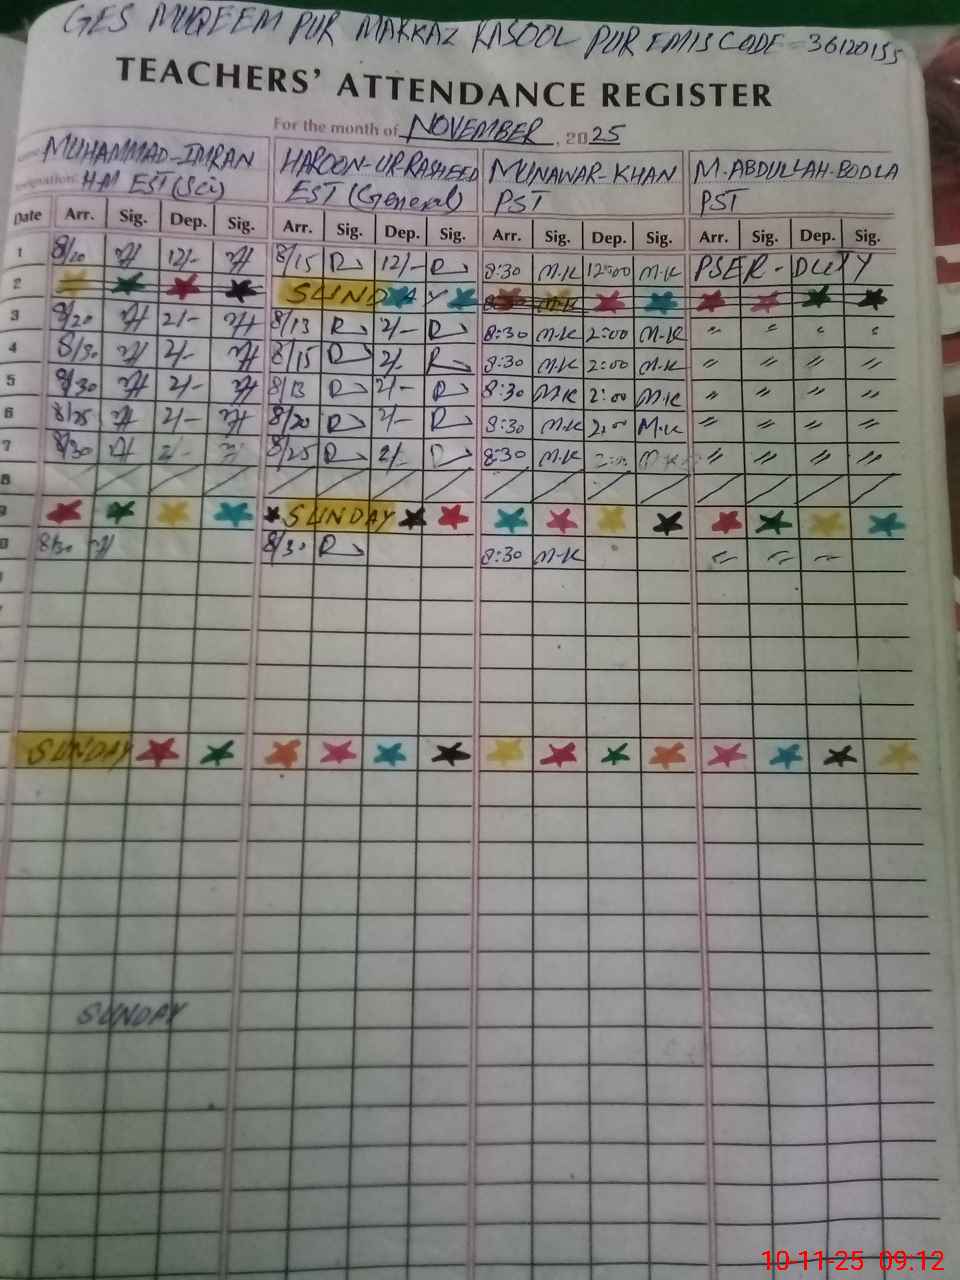 GES MUQEEM PUR MARKAZ RASOOL PUR EMIS CODE = 36120155
TEACHERS' ATTENDANCE REGISTER
For the month of NOVEMBER, 2025
MUHAMMAD-IMRAN HAROON-UR-RASHEED MUNAWAR-KHAN M.ABDULLAH-BODLA
HM EST(Sci) EST(General) PST PST
Date Arr. Sig. Dep. Sig. Arr. Sig. Dep. Sig. Arr. Sig. Dep. Sig. Arr. Sig. Dep. Sig.
1 8/20 12/- 8/15 R 12/- R 8:30 M.K 12:00 M.K PSER - DUTY
2 SUNDAY
3 8/20 2/- 8/13 R 2/- R 8:30 M.K 2:00 M.K " " " "
4 8/30 2/- 8/15 R 2/- R 8:30 M.K 2:00 M.K " " " "
5 8/30 2/- 8/13 R 2/- R 8:30 M.K 2:00 M.K " " " "
6 8/25 2/- 8/20 R 2/- R 8:30 M.K 2:00 M.K " " " "
7 8/30 2/- 8/25 R 2/- R 8:30 M.K 2:00 M.K " " " "
8
9 SUNDAY
8/30 8/30 R 8:30 M.K
SUNDAY
SUNDAY
10-11-25 09.12